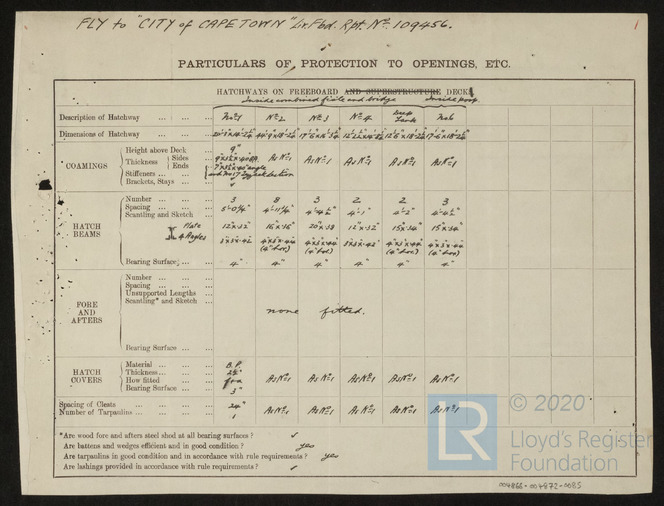 FLY to "CITY of CAPETOWN" Lv. Fbd. Rpt. No. 109456.
PARTICULARS OF PROTECTION TO OPENINGS, ETC.
HATCHWAYS ON FREEBOARD AND SUPERSTRUCTURE DECKS
Inside combined fo'c'le and bridge Inside poop
Description of Hatchway ... ... No. 1 No. 2 No. 3 No. 4 Deep Tank No. 6
Dimensions of Hatchway
COAMINGS
Height above Deck ... 9"
Thickness { Sides ... As No. 1 As No. 1 As No. 1 As No. 1 As No. 1
Ends
Stiffeners ... ... ...
Brackets, Stays ... ...
HATCH BEAMS
Number ... ... ... 3 8 3 2 2 3
Spacing ... ... ... 5'-0¼" 4'-11¼" 4'-4½" 4'-1" 4'-2" 4'-4½"
Scantling and Sketch ...
Plate 12"x.32" 16"x.36" 20"x.38 12"x.32" 15"x.34" 15"x.34"
4 Angles 3"x3"x.42 4"x3"x.44 4"x3"x.44 3"x3"x.42" 4"x3"x.44 4"x3"x.44
(4" hor) (4" hor) (4" hor) (4" hor)
Bearing Surface ... ... 4" 4" 4" 4" 4" 4"
FORE AND AFTERS
Number ... ... ...
Spacing ... ... ...
Unsupported Lengths
Scantling* and Sketch ...
none fitted.
Bearing Surface ... ...
HATCH COVERS
Material ... ... ... B.P.
Thickness ... ... ... 2½"
How fitted ... ... f & a As No. 1 As No. 1 As No. 1 As No. 1 As No. 1
Bearing Surface ... ... 3"
Spacing of Cleats ... ... ... 24"
Number of Tarpaulins ... ... ... 1 As No. 1 As No. 1 As No. 1 As No. 1 As No. 1
*Are wood fore and afters steel shod at all bearing surfaces? ✓
Are battens and wedges efficient and in good condition? yes
Are tarpaulins in good condition and in accordance with rule requirements? yes
Are lashings provided in accordance with rule requirements? ✓
© 2020
LR
Lloyd's Register
Foundation
004866-004872-0085